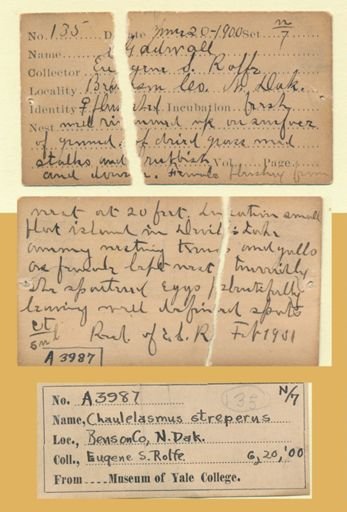 No. 135 Date June 20-1900 Set n/7
Name Gadwall
Collector Eugene S. Rolfe
Locality Benson Co. N. Dak.
Identity ♀ flushed Incubation fresh
Nest well rimmed up on surface
of ground, of dried grass weed
stalks and rubbish Vol. Page
and down. Female flushed from
nest at 20 feet. Location small
flat island in Devils Lake
among nesting terns and gulls
As female left nest, hurriedly
she spattered eggs, plentifully
leaving well defined spots
Recd. of E.S.R. Feb 1901
A3987
No. A3987 135 N/7
Name, Chaulelasmus streperus
Loc., Benson Co, N. Dak.
Coll., Eugene S. Rolfe 6,20,'00
From .... Museum of Yale College.